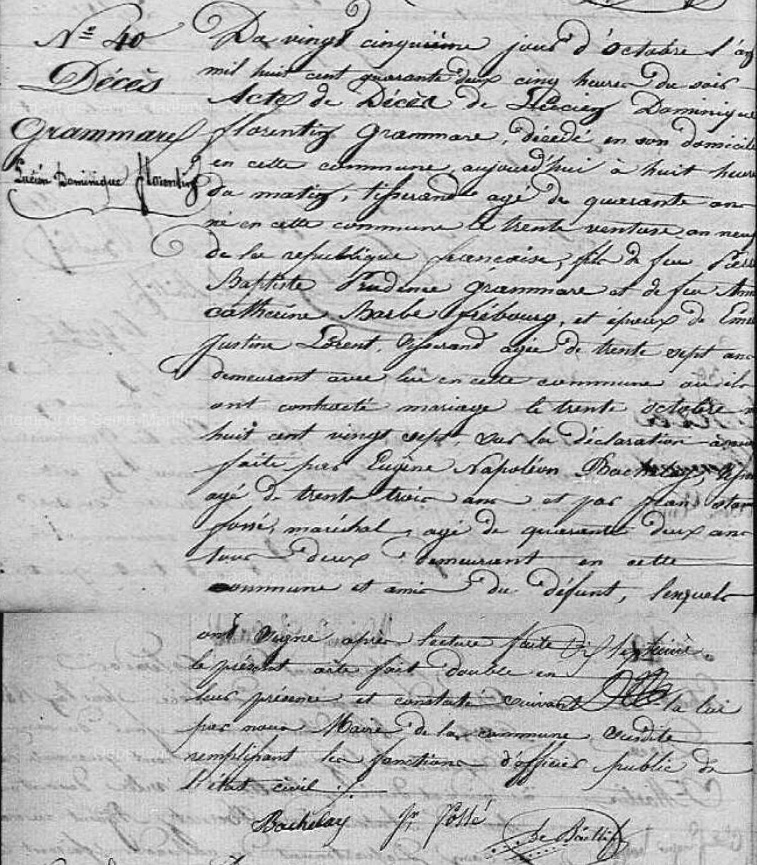 N.º 40
Décès
Grammare
Lucien Dominique florentin
Du vingt cinquième jour d'octobre l'an
mil huit cent quarante deux cinq heures du soir
Acte de Décès de Lucien Dominique
florentin Grammare, décédé en son domicile
en cette commune aujourd'hui à huit heures
du matin, tisserand agé de quarante ans
né en cette commune le trente ventose an neuf
de la republique francaise, fils de feu Pierre
Baptiste Prudence Grammare et de feu Anne
Catherine Barbe frébourg, et époux de
Justine Lorent, tisserand agée de trente sept ans
demeurant avec lui en cette commune où ils
ont contracté mariage le trente octobre
huit cent vingt sept sur la déclaration à nous
faite par Eugène Napoléon Bachelay,
agé de trente trois ans et par
fossé, maréchal, agé de quarante deux ans
tous deux demeurant en cette
commune et amis du défunt, lesquels
ont signé après lecture faite
le présent acte fait double en
leur présence et constaté suivant la loi
par nous Maire de la commune susdite
remplissant les fonctions d'officier public de
l'état civil
Bachelay fr fossé Le Baillif